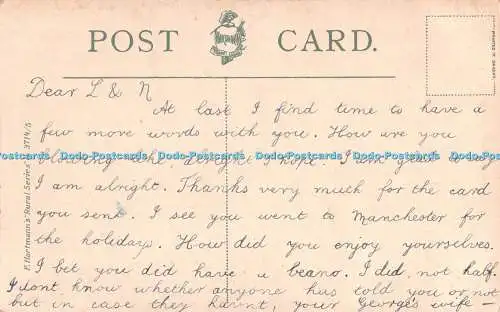 POST CARD.
Dear L & N
At last I find time to have a
few more words with you. How are you
alright I hope. I am glad to say
I am alright. Thanks very much for the card
you sent. I see you went to Manchester for
the holidays. How did you enjoy yourselves.
I bet you did have a beano. I did, not half.
I dont know whether anyone has told you or not
but in case they haint, your George's wife –
F. Hartmann's "Rural Series"
3714/5
Dodo-Postcards Dodo-Postcards Dodo-Postcards Dodo-Postcards